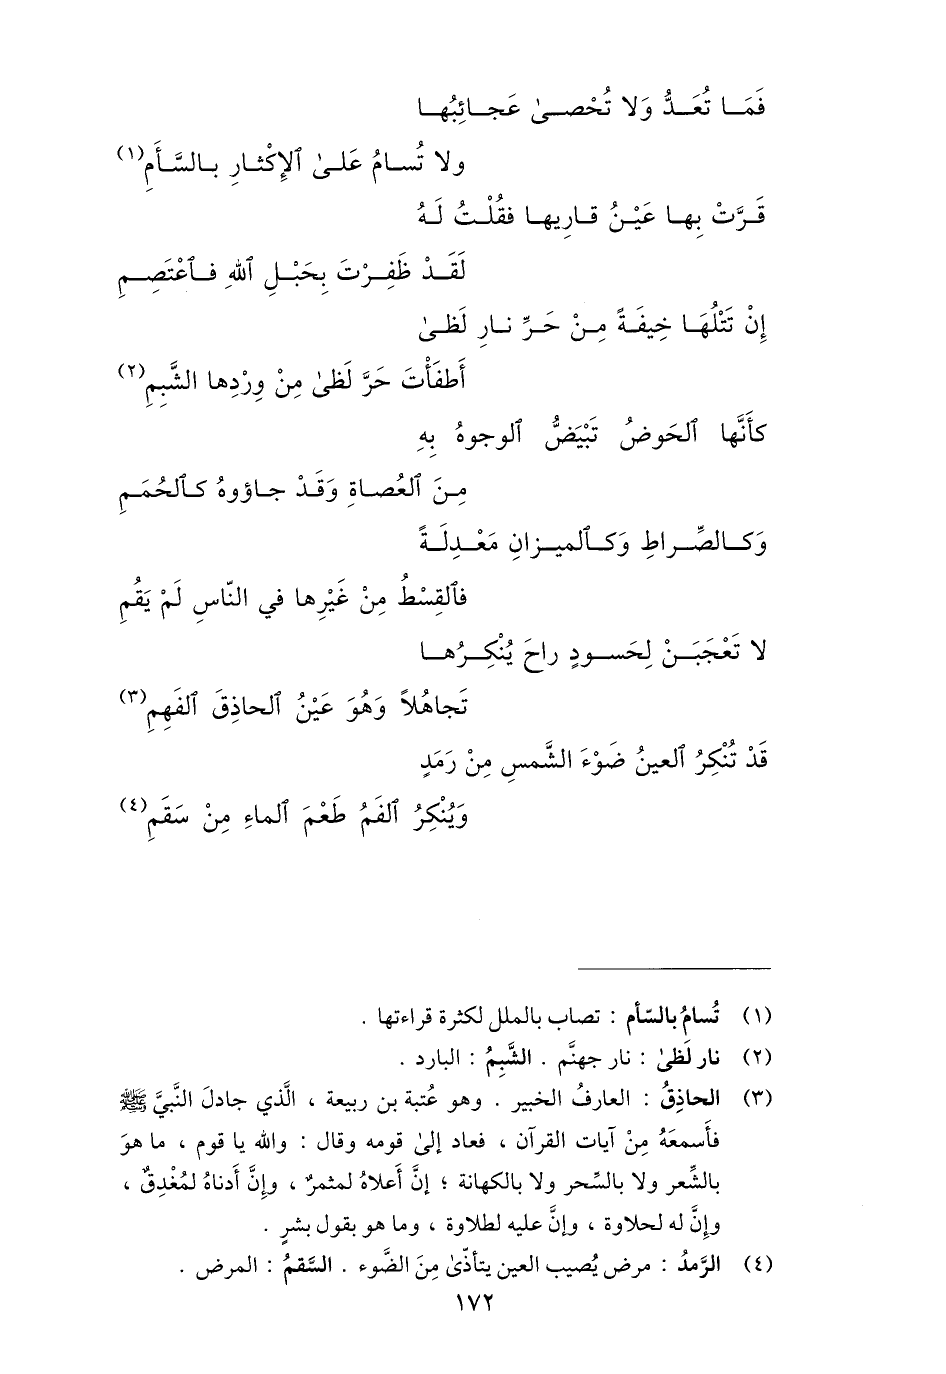 فَمَــا تُعَــدُّ وَلا تُحْصــىٰ عَجــائِبُهــا
ولا تُســامُ عَلــىٰ ٱلإِكْثــارِ بــالسَّــأَمِ(١)
قَــرَّتْ بِهــا عَيْــنُ قــارِيهــا فقُلْــتُ لَــهُ
لَقَــدْ ظَفِــرْتَ بِحَبْــلِ ٱللهِ فــٱعْتَصِــمِ
إِنْ تَتْلُهَــا خِيفَــةً مِــنْ حَــرِّ نــارِ لَظــىٰ
أَطفَأْتَ حَرَّ لَظىٰ مِنْ وِرْدِها الشَّبِمِ(٢)
كأَنَّها ٱلحَوضُ تَبْيَضُّ ٱلوجوهُ بِهِ
مِــنَ ٱلعُصــاةِ وَقَــدْ جــاؤوهُ كــٱلحُمَــمِ
وَكــالصِّــراطِ وَكــٱلميــزانِ مَعْــدِلَــةً
فٱلقِسْطُ مِنْ غَيْرِها في النّاسِ لَمْ يَقُمِ
لا تَعْجَبَــنْ لِحَســودٍ راحَ يُنْكِــرُهــا
تَجاهُلاً وَهُوَ عَيْنُ ٱلحاذِقَ ٱلفَهِمِ(٣)
قَدْ تُنْكِرُ ٱلعينُ ضَوْءَ الشَّمسِ مِنْ رَمَدٍ
وَيُنْكِرُ ٱلفَمُ طَعْمَ ٱلماءِ مِنْ سَقَمِ(٤)
(١) تُسامُ بالسّأم : تصاب بالملل لكثرة قراءتها .
(٢) نار لَظىٰ : نار جهنَّم . الشَّبِمُ : البارد .
(٣) الحاذِقُ : العارفُ الخبير . وهو عُتبة بن ربيعة ، الَّذي جادلَ النَّبيَّ ﷺ
فأَسمعَهُ مِنْ آيات القرآن ، فعاد إلىٰ قومه وقال : والله يا قوم ، ما هوَ
بالشِّعر ولا بالسِّحر ولا بالكهانة ؛ إنَّ أَعلاهُ لمثمرٌ ، وإِنَّ أَدناهُ لمُغْدِقٌ ،
وإِنَّ له لحلاوة ، وإنَّ عليه لطلاوة ، وما هو بقول بشرٍ .
(٤) الرَّمدُ : مرض يُصيب العين يتأذّىٰ مِنَ الضَّوء . السَّقمُ : المرض .
١٧٢